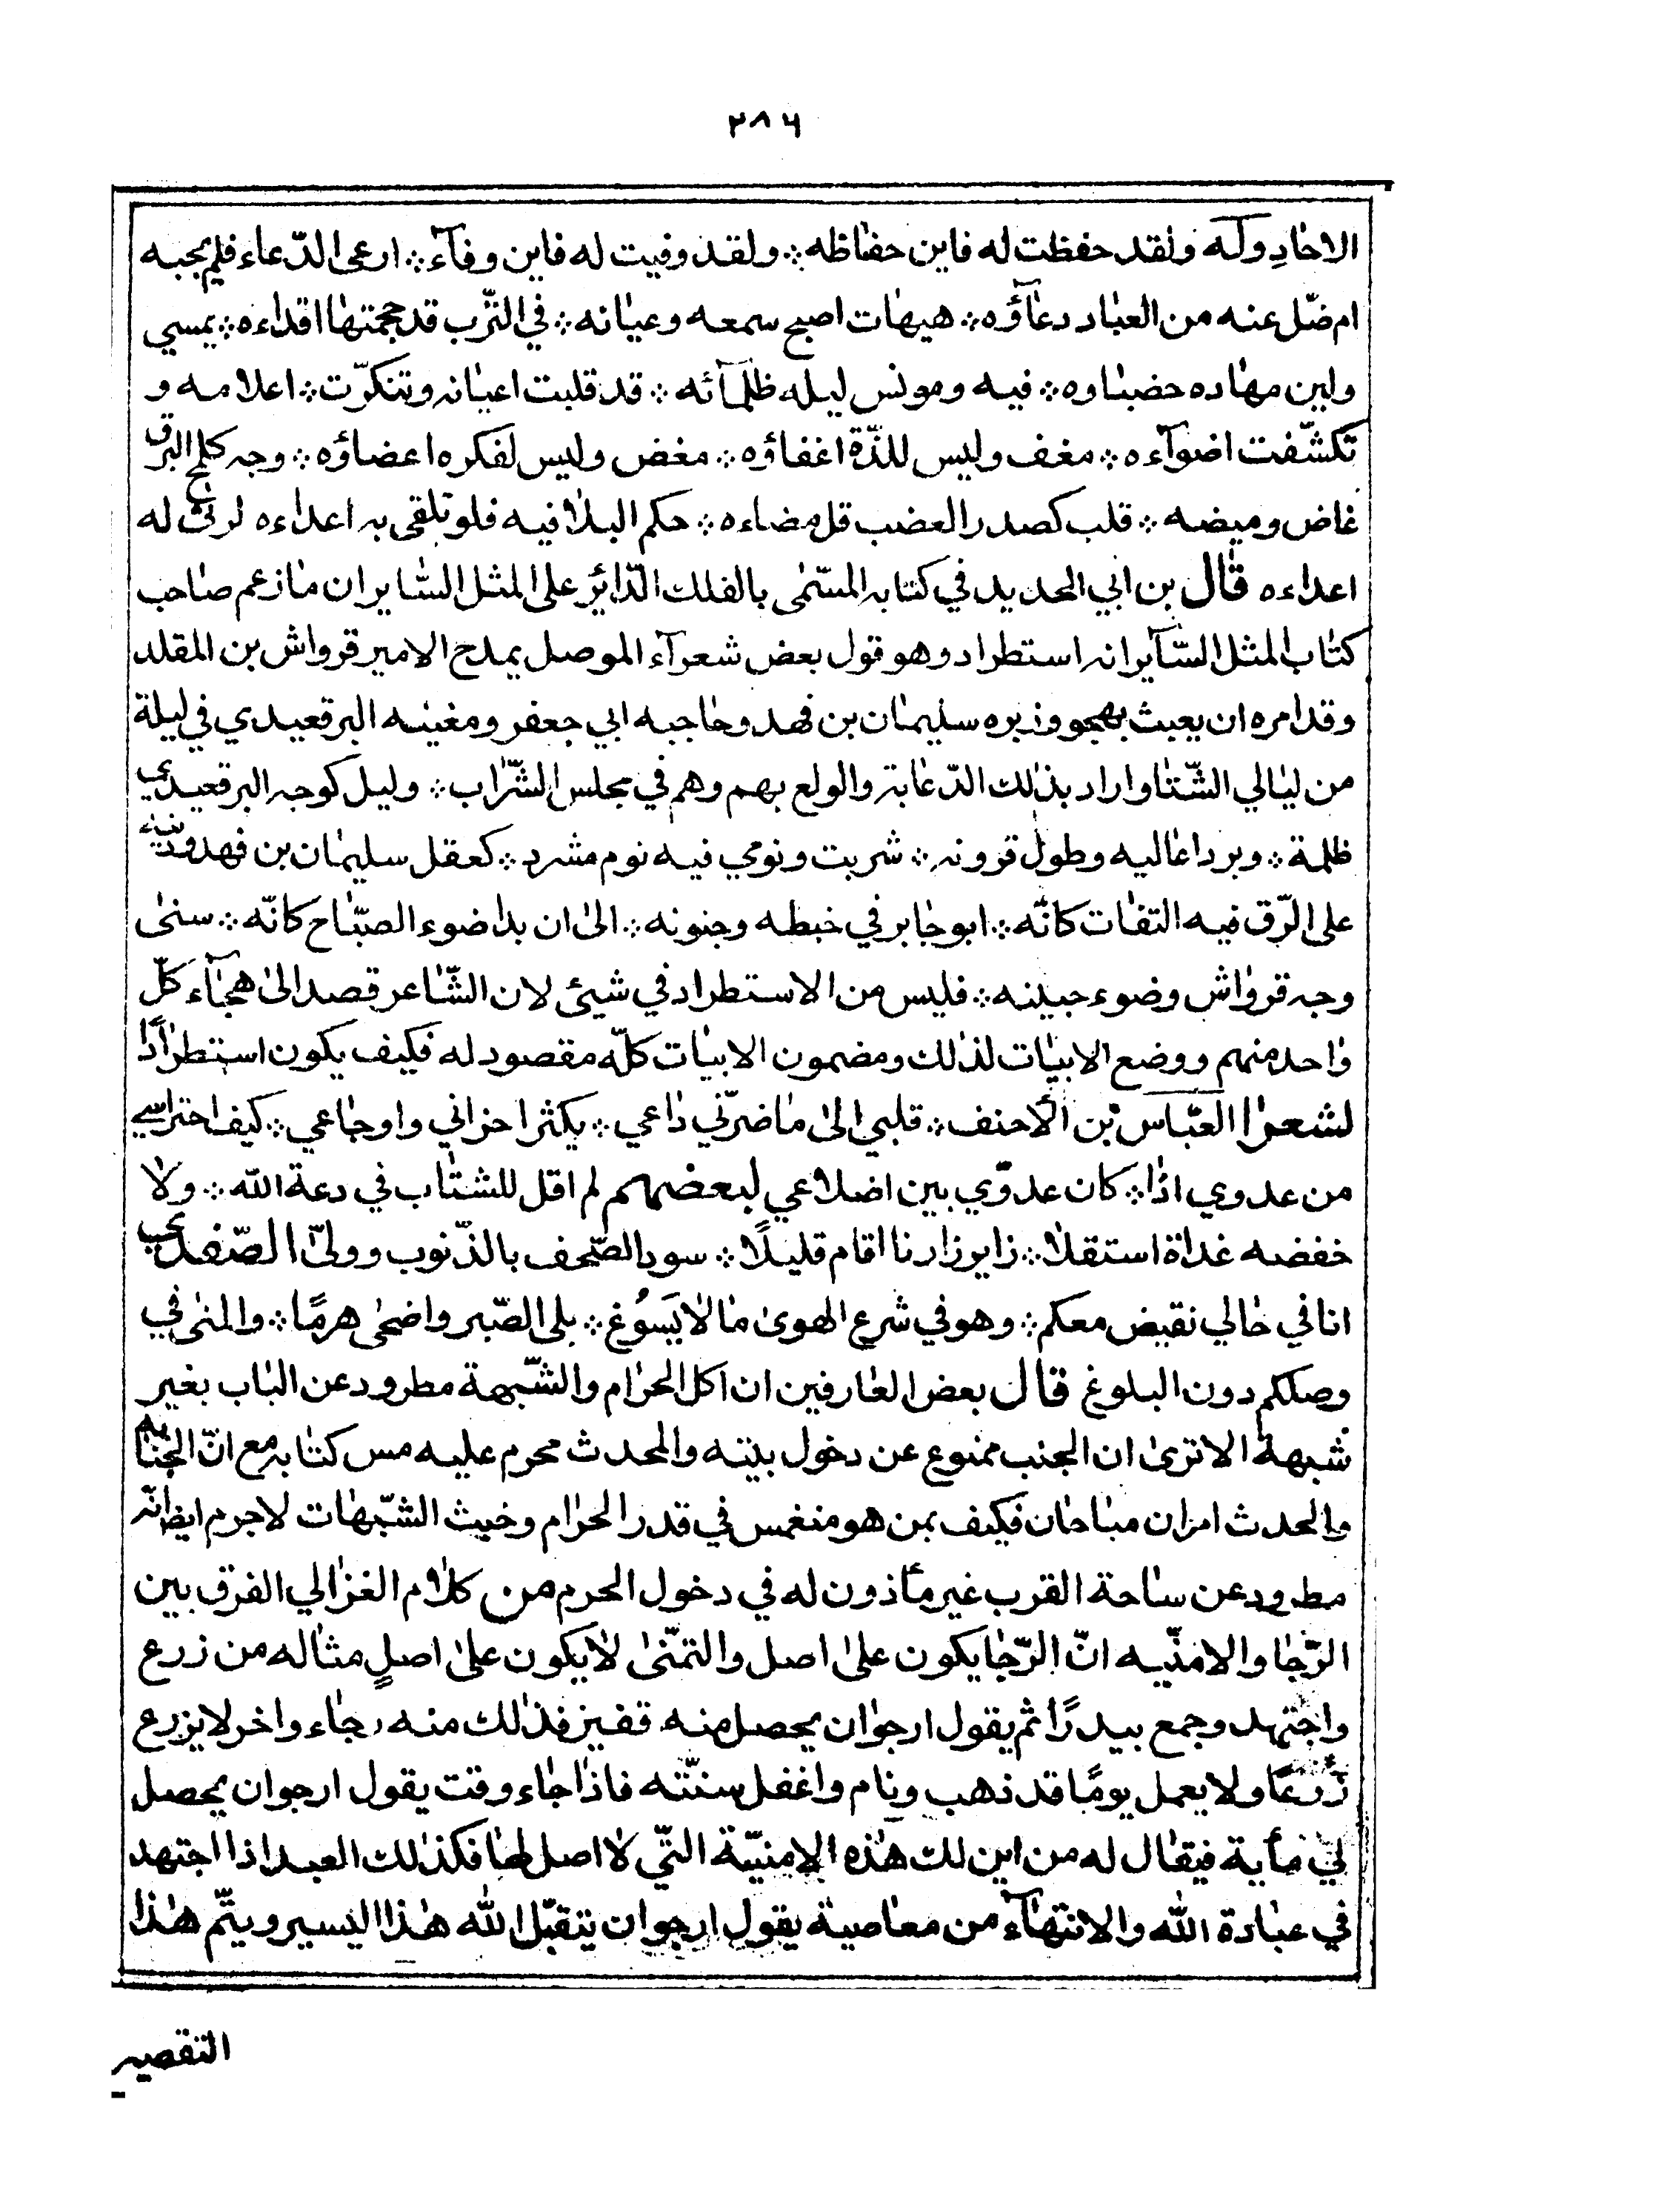 ٢٨٦
الاحٰادِ وله ولقد حفظت له فاين حفٰاظه ※ ولقد وفيت له فاين وفآء ※ ارعى الدّعاء فلم يجبه
ام ضّل عنه من العبٰاد دعٰاؤه ※ هيهٰات اصبح سمعه وعيٰانه ※ في التّرب قد حجمتهٰا اقذاءه ※ يمسي
ولين مهٰاده حضبٰاوه ※ فيه ومونس ليله ظلمآئه ※ قد قلبت اعيٰانه وتنكرّت ※ اعلامه و
تكشّفت اضوآءه ※ مغف وليس للذّة اغفاؤه ※ مغض وليس لفكره اعضاؤه ※ وجه كلمح البرق
غاض وميضه ※ قلب كصدر العضب قل مضاءه ※ حكم البلاٰ فيه فلو تلقى به اعداءه لرثى له
اعداءه قٰال بن ابي الحديد في كتابه المسّمٰى بالفلك الدّائر على المثل السّٰاير ان مٰا زعم صٰاحب
كتٰاب المثل السّآير انه استطراد وهو قول بعض شعرآء الموصل يمدح الامير قرواش بن المقلد
وقد امره ان يعبث بهجو وزيره سليمٰان بن فهد وحٰاجبه ابي جعفر ومغينه البرقعيدي في ليلة
من ليٰالي الشّتٰا واراد بذٰلك الدّعٰابة والولع بهم وهم في مجلس الشّرٰاب ※ وليل كوجه البرقعيدي
ظلمة ※ وبرد اغٰاليه وطول قرونه ※ شربت ونومي فيه نوم مشرد ※ كعقل سليمٰان بن فهد ودينه
على الرّق فيه التفٰات كانّه ※ ابو جٰابر في خبطه وجنونه ※ الىٰ ان بدا ضوء الصبّٰاح كانّه ※ سنىٰ
وجه قروٰاش وضوء جبينه ※ فليس من الاستطراد في شيئ لان الشّٰاعر قصد الىٰ هجٰآء كلّ
وٰاحد منهم ووضع الابيٰات لذٰلك ومضمون الابيٰات كلّه مقصود له فكيف يكون استطراٰدًا
لشعرٰا العبّٰاس بن الأحنف ※ قلبي الىٰ مٰا ضرّني دٰاعي ※ يكثر احزاني واوجٰاعي ※ كيف احتراسي
من عدوي اذٰا ※ كان عدوّي بين اضلاعي لبعضهم لم اقل للشتٰاب في دعة اللّه ※ ولاٰ
خفضه غداة استقلاٰ ※ زاير زارنا اقام قليلًا ※ سود الصّحف بالذّنوب وولىّ الصّفدي
انا في حٰالي نقيض معكم ※ وهو في شرع الهوىٰ مٰا لاٰ يَسوُغ ※ بلى الصّبر واضحٰى هرمًا ※ والمنىٰ في
وصلكم دون البلوغ قال بعض العٰارفين ان اكل الحرٰام والشّبهة مطرود عن البٰاب بغير
شبهة الا ترىٰ ان الجنب ممنوع عن دخول بيته والمحدث محرم عليه مس كتٰابه مع انّ الجنٰابة
والحدث امرٰان مبٰاحٰان فكيف بمن هو منغمس في قدر الحرٰام وخبث الشّبهٰات لاجرم ايضا انّه
مطرود عن سٰاحة القرب غير مأذون له في دخول الحرم من كلاٰم الغزٰالي الفرق بين
الرّجٰا والامنّيه انّ الرّجٰا يكون علىٰ اصل والتمنّىٰ لاٰيكون علىٰ اصلٍ مثٰاله من زرع
واجتهد وجمع بيدرًا ثم يقول ارجوٰ ان يحصل منه قفيز فذٰلك منه رجٰاء واخر لا يزرع
زرعًا ولا يعمل يومًا قد ذهب ونام واغفل سنتّه فاذٰا جٰاء وقت يقول ارجوا ان يحصل
لي مأية فيقٰال له من اين لك هٰذه الامنيّة التّي لاٰ اصل لهٰا فكذٰلك العبد اذا اجتهد
في عبٰادة اللّٰه والانتهٰآء من معٰاصية يقول ارجوا ن يتقبّل اللّٰه هٰذا اليسير ويتّم هٰذٰا
التقصير